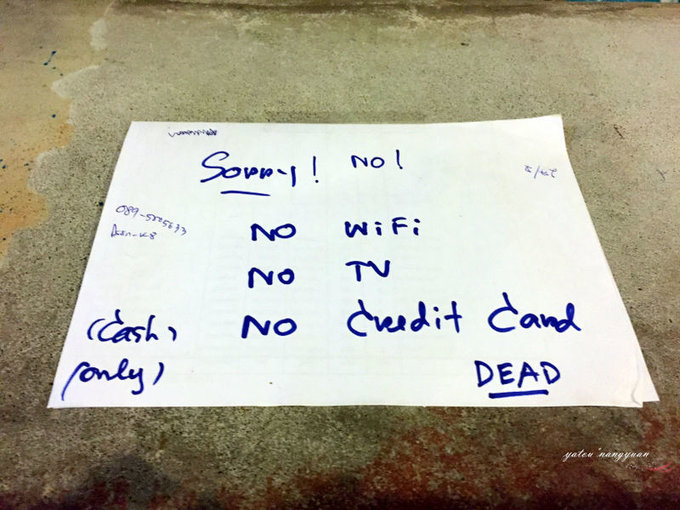 Sorry! NO!
NO WiFi
NO TV
(Cash NO Credit Card
only) DEAD
yatou'nangyuan